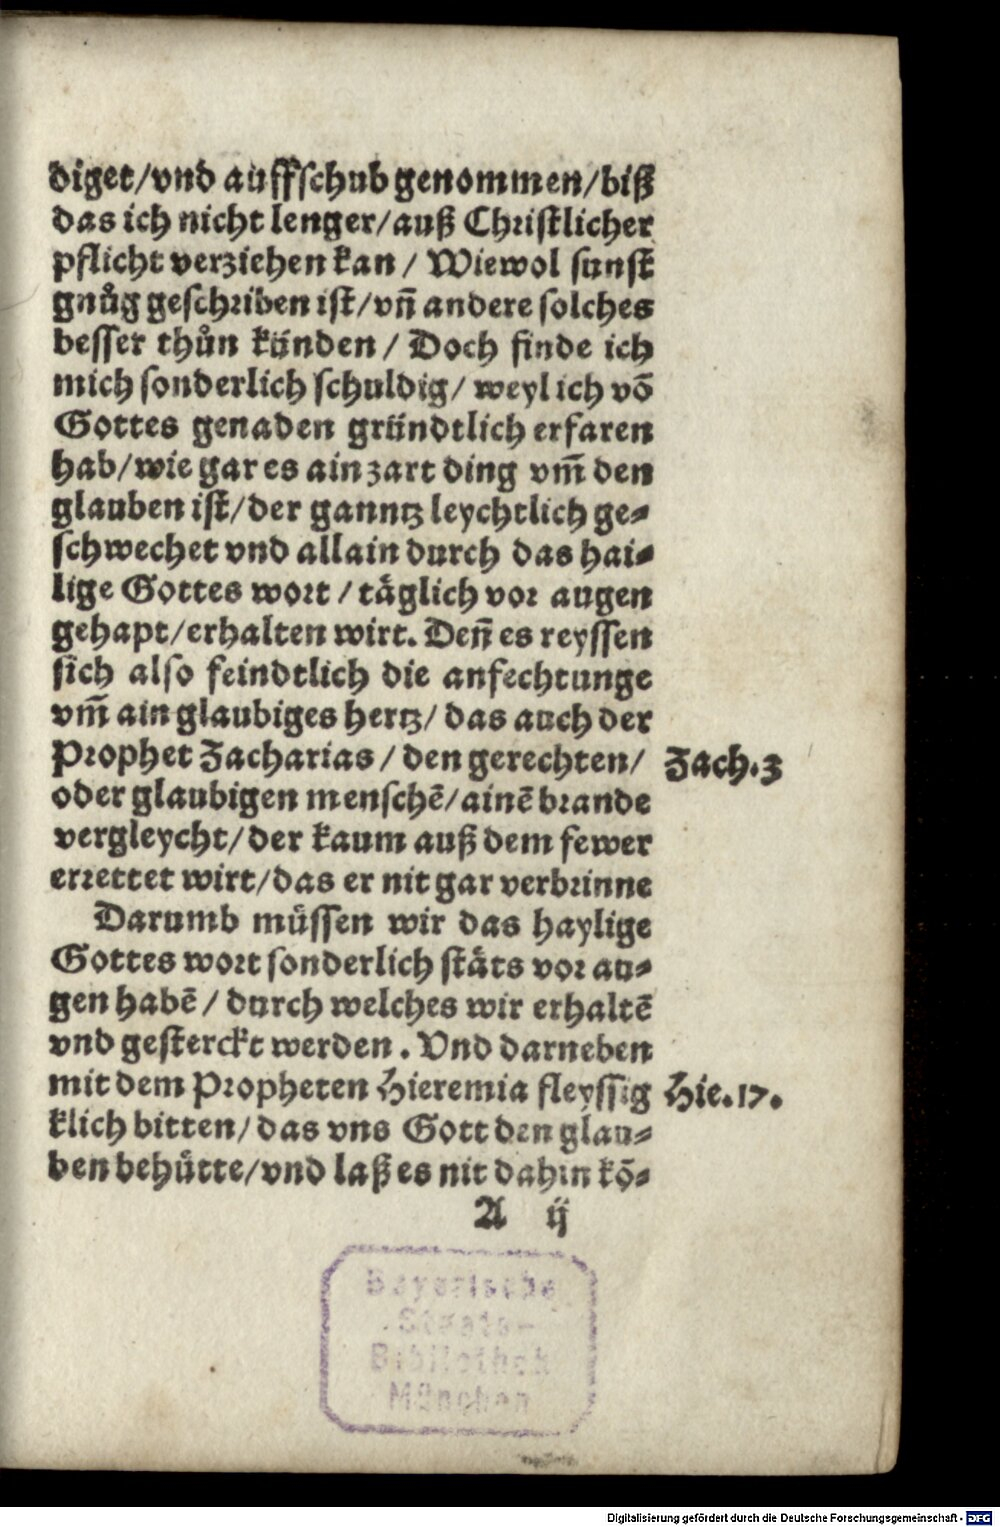 diget/vnd auffschub genommen/biß
das ich nicht lenger/auß Christlicher
pflicht verziehen kan / Wiewol sunst
gnůg geschriben ist/vñ andere solches
besser thůn künden / Doch finde ich
mich sonderlich schuldig/ weyl ich võ
Gottes genaden gründtlich erfaren
hab/wie gar es ain zart ding vm̃ den
glauben ist/der ganntz leychtlich ge⸗
schwechet vnd allain durch das hai⸗
lige Gottes wort / täglich vor augen
gehapt/erhalten wirt. Deñ es reyssen
sich also feindtlich die anfechtunge
vm̃ ain glaubiges hertz/ das auch der
Prophet Zacharias / den gerechten/ Zach.3
oder glaubigen menschẽ/ainẽ brande
vergleycht/der kaum auß dem fewer
errettet wirt/das er nit gar verbrinne
Darumb müssen wir das haylige
Gottes wort sonderlich stäts vor au⸗
gen habẽ / durch welches wir erhaltẽ
vnd gesterckt werden . Vnd darneben
mit dem Propheten Hieremia fleyssig Hie.17.
klich bitten/das vns Gott den glau⸗
ben behütte/vnd laß es nit dahin kõ⸗
A ij
Bayerische
Staats-
Bibliothek
München
Digitalisierung gefördert durch die Deutsche Forschungsgemeinschaft - DFG